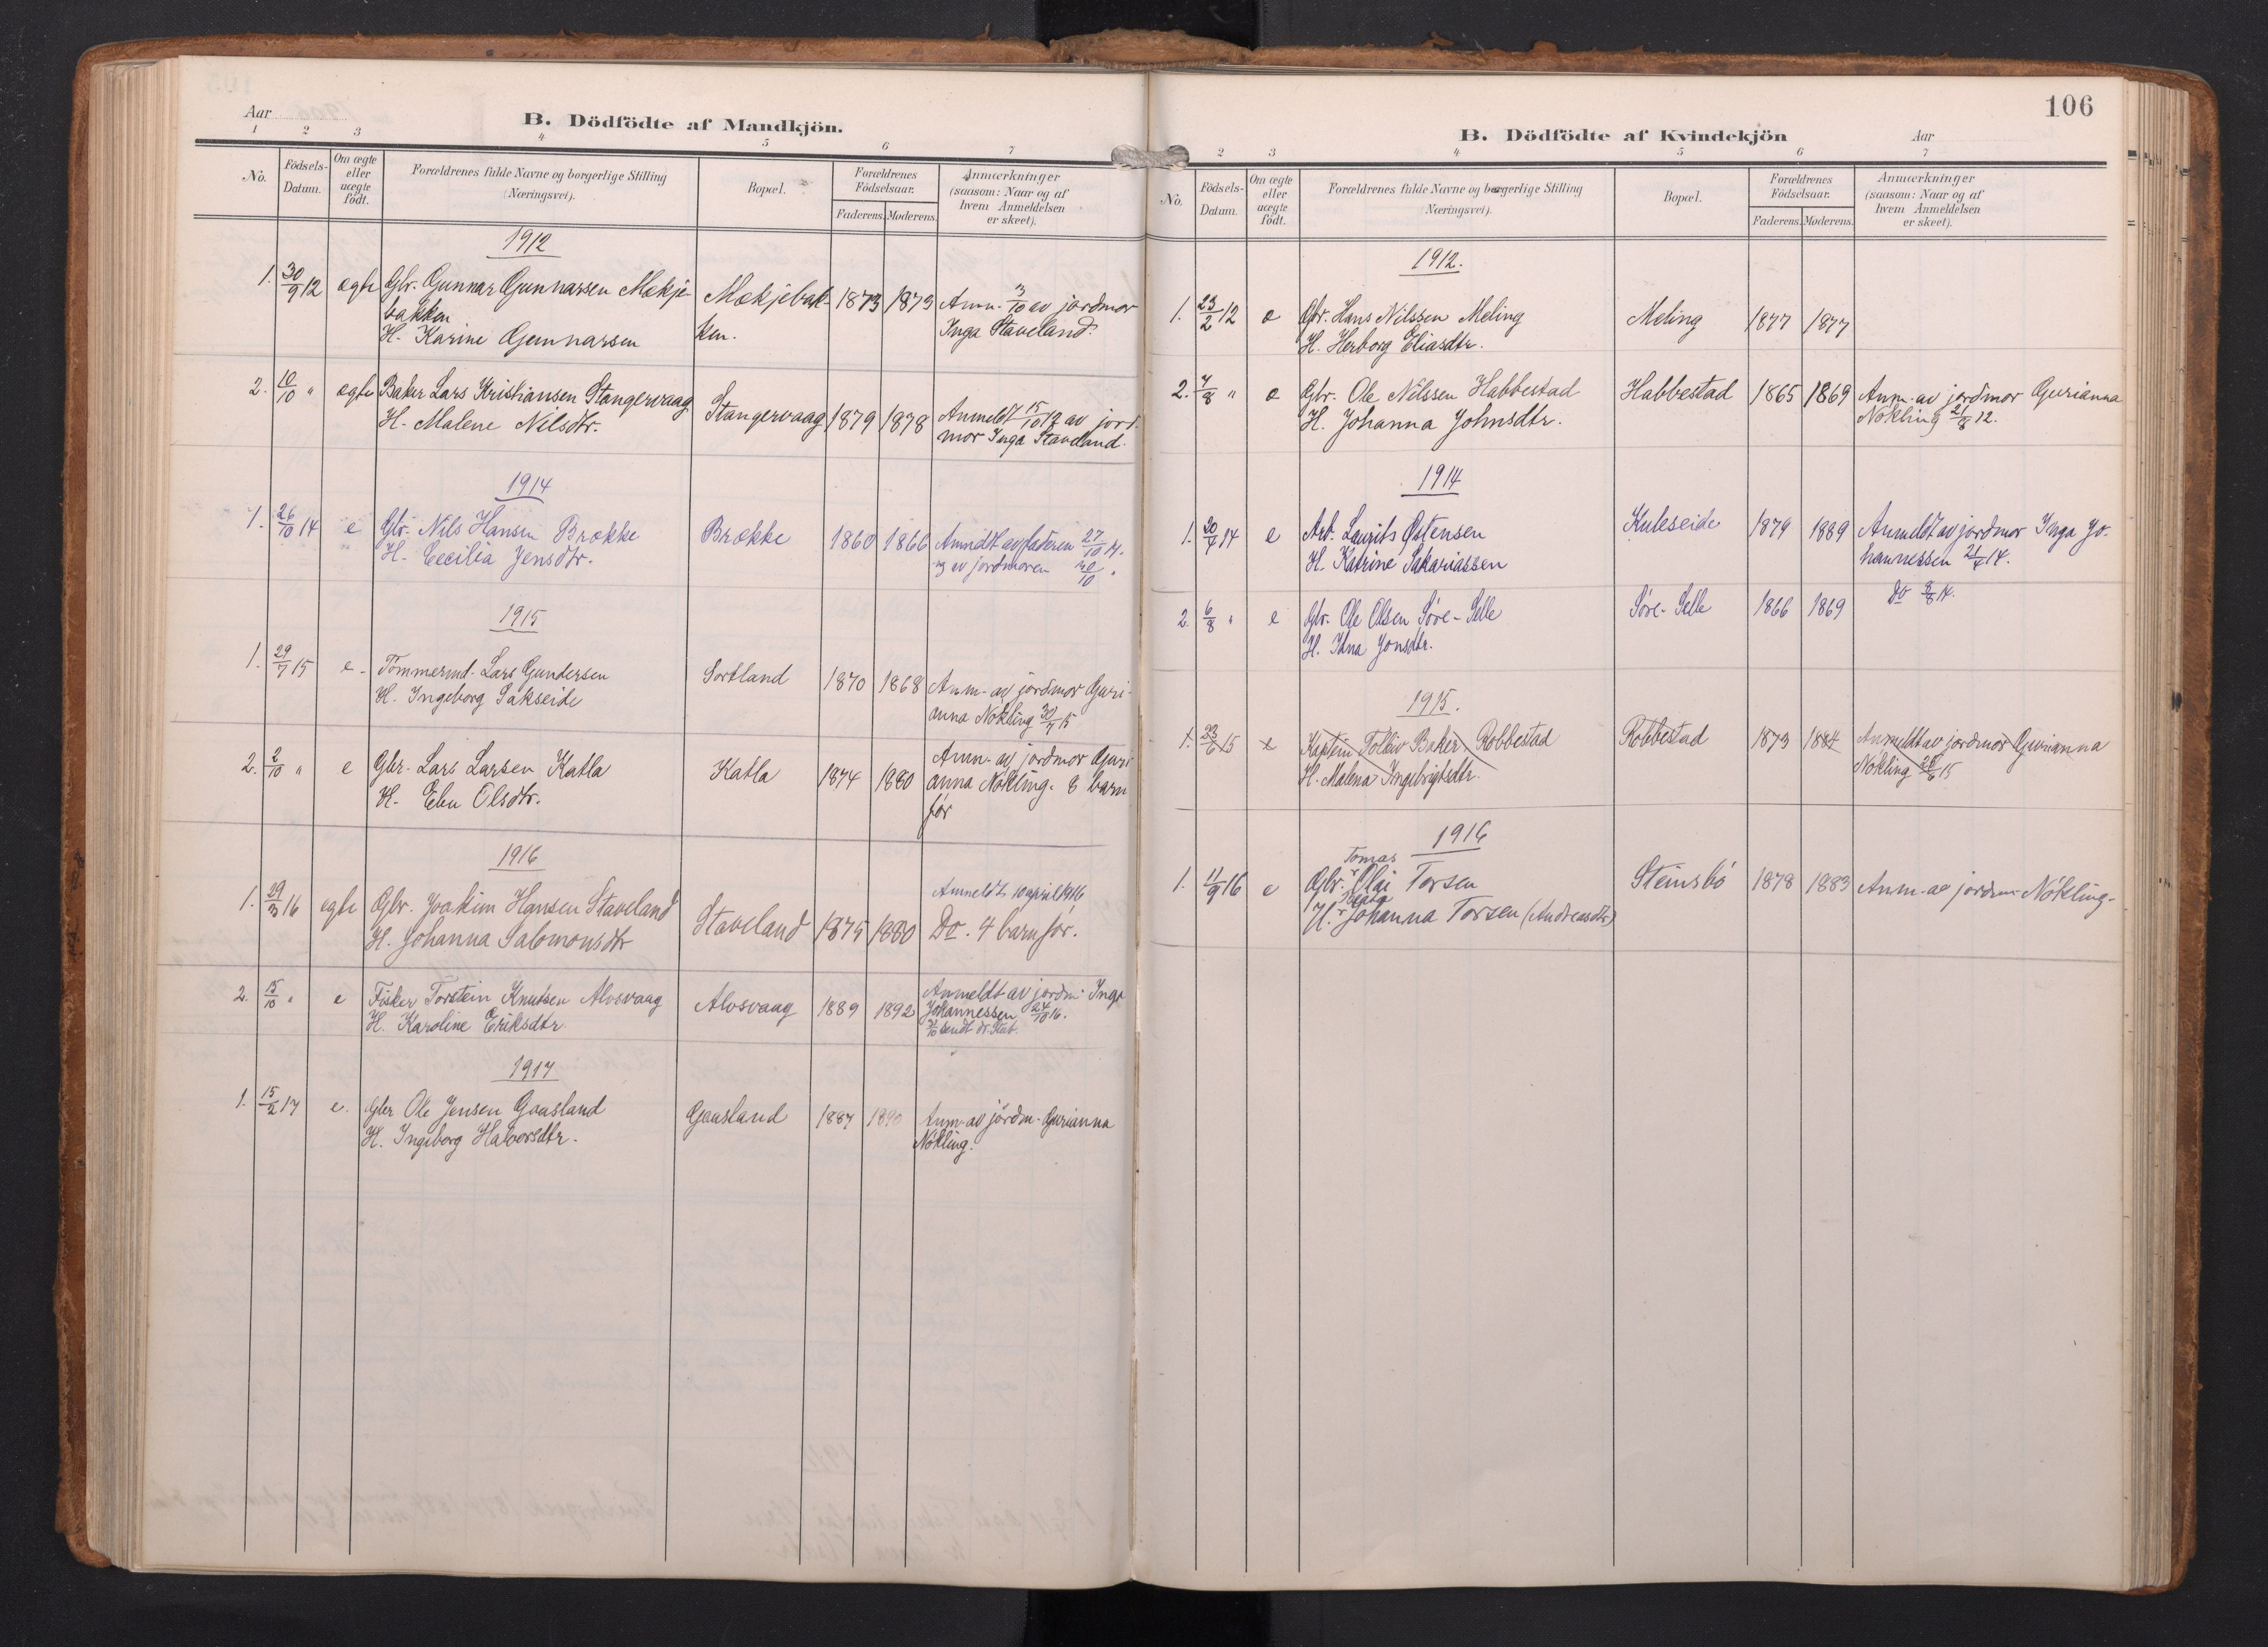 Aar
B. Dödfödte af Mandkjön.
1 2 3 4 5 6 7
No.
Födsels-
Datum.
Om ægte
eller
uægte
födt.
Forældrenes fulde Navne og borgerlige Stilling
(Næringsvei).
Bopæl.
Forældrenes
Födselsaar.
Faderens. Moderens.
Anmærkninger
(saasom: Naar og af
hvem Anmeldelsen
er skeet).
1912
1. 30/9 12 ægte Gbr. Gunnar Gunnarsen Mækje- Mækjebak- 1873 1873 Anm. 3/10 av jordmor
bakken ken. Inga Staveland.
H. Karine Gunnarsen
2. 10/10 " ægte Baker Lars Kristiansen Stangervaag Stangervaag 1879 1878 Anmeldt 15/10 12 av jord-
H. Malene Nilsdtr. mor Inga Staveland.
1914
1. 26/10 14 e Gbr. Nils Hansen Brække Brække 1860 1866 Anmldt av faderen 27/10 14.
H. Cecilia Jensdtr. og av jordmoren 30/10 "
1915
1. 29/7 15 e- Tömmermd. Lars Gundersen Sortland 1870 1868 Anm- av jordmor Guri-
H. Ingeborg Sakseide anna Nökling 30/7 15
2. 2/10 " e Gbr. Lars Larsen Katla Katla 1874 1880 Anm- av jordmor Guri
H. Elen Olsdtr. anna Nökling. 8 barn
för
1916
Anmeldt 10 april 1916
1. 29/3 16 ægte Gbr. Joakim Hansen Staveland Staveland 1875 1880 Do. 4 barn för.
H. Johanna Salomonsdtr
2. 15/10 " e Fisker Torstein Knutsen Alvsvaag Alvsvaag 1889 1892 Anmeldt av jordm. Inga
H. Karoline Eriksdtr Johannessen 24/10 16.
sendt
1917
1. 15/2 17 e. Gbr Ole Jensen Gaasland Gaasland 1887 1890 Anm- av jordm- Gurianna
H. Ingeborg Halvorsdtr. Nökling.
106
B. Dödfödte af Kvindekjön
Aar
2 3 4 5 6 7
No.
Födsels-
Datum.
Om ægte
eller
uægte
födt.
Forældrenes fulde Navne og borgerlige Stilling
Næringsvei).
Bopæl.
Forældrenes
Födselsaar.
Faderens. Moderens.
Anmærkninger
(saasom: Naar og af
hvem Anmeldelsen
er skeet).
1912.
1. 23/2 12 e Gbr. Hans Nilssen Meling Meling 1877 1877
H. Herborg Eliasdtr.
2. 7/8 " e Gbr. Ole Nilssen Habbestad Habbestad 1865 1869 Anm. av jordmor Gurianna
H. Johanna Johnsdtr. Nökling 21/8 12.
1914
1. 20/4 14 e Arb. Laurits Østensen Kuleseide 1879 1889 Anmeldt av jordmor Inga Jo-
H. Katrine Sakariassen hannessen 21/4 14.
2. 6/8 " e Gbr. Ole Olsen Søre-Selle Søre-Selle 1866 1869 Do 8/8 14.
H. Jonsdtr.
1915.
1. 23/6 15 e Kaptein Tolleiv Baker Robbestad Robbestad 1873 1884 Anmeldt av jordmor Gurianna
H. Malena Ingebrigtsdtr. Nökling 26/6 15
1916
Tomas
1. 11/9 16 e Gbr. Olai Torsen Steinsbö 1878 1883 Anm- av jordm- Nökling-
H. Johanna Torsen (Andreasdtr)